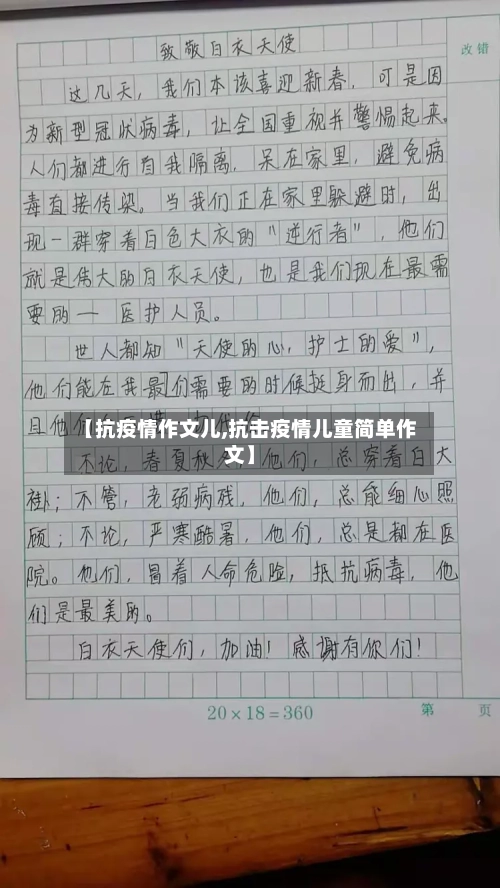 致敬白衣天使
改错
这几天，我们本该喜迎新春，可是因
为新型冠状病毒，让全国重视并警惕起来。
人们都进行自我隔离，呆在家里，避免病
毒直接传染。当我们正在家里躲避时，出
现一群穿着白色大衣的"逆行者"，他们
就是伟大的白衣天使，也是我们现在最需
要的一医护人员。
世人都知"天使的心，护士的爱"，
他们能在我最们需要的时候挺身而出，并
且他们
【抗疫情作文儿,抗击疫情儿童简单作
文】
不论，春夏秋冬他们，总穿着白大
褂；不管，老弱病残，他们，总能细心照
顾；不论，严寒酷暑，他们，总是都在医
院。他们，冒着人命危险，抵抗病毒，他
们是最美的。
白衣天使们，加油！感谢有你们！
20×18=360
第 页